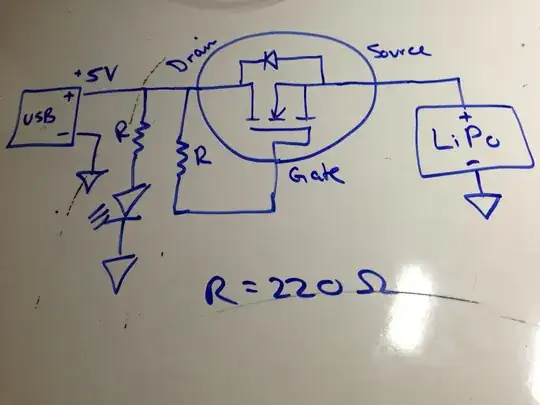 Drain
Source
+5V
+
USB
-
R
R
Gate
+
LiPo
-
R = 220 Ω